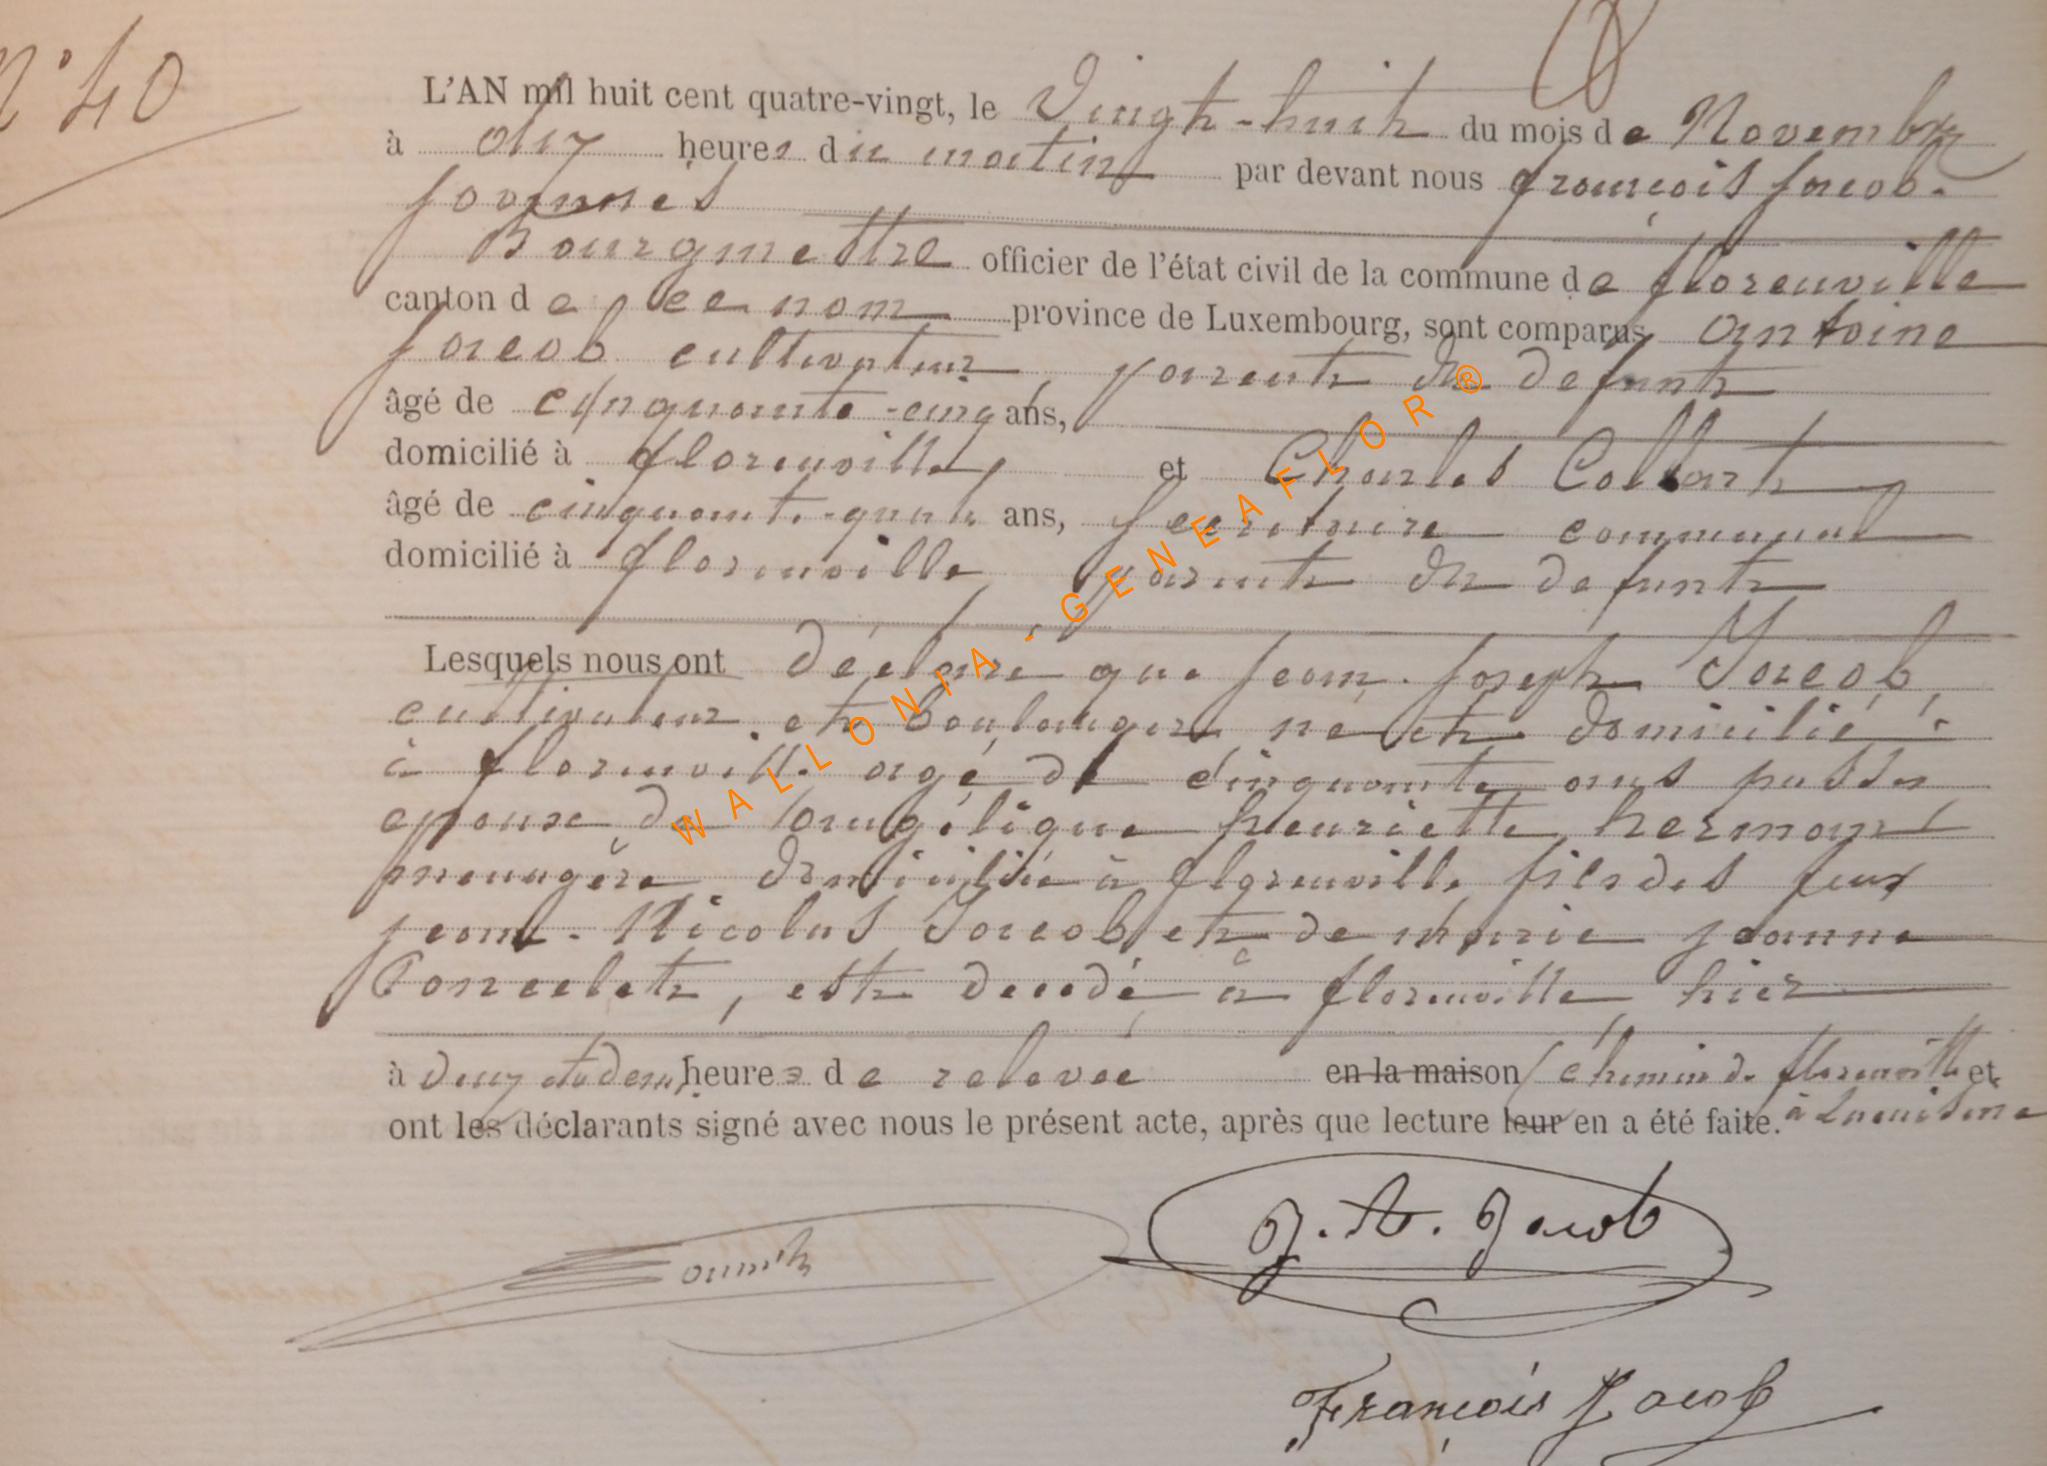 N° 40
L'AN mil huit cent quatre-vingt, le Vingt-huit du mois de Novembre
à onz heures du matin par devant nous françois Jacob-
Bourgmestre officier de l'état civil de la commune de florenville
canton de ce nom province de Luxembourg, sont comparus Antoine
Jacob cultivateur parent du defunt
âgé de cinquante-cinq ans,
domicilié à florenville, et Charles Collart
âgé de cinquante-quatre ans, Secretaire communal
domicilié à florenville parent du defunt
Lesquels nous ont déclaré que Jean-Joseph Jacob,
cultivateur et boulanger né et domicilié
à florenville agé de cinquante ans passés
epoux de Angélique henriette hermand
menagère domiciliée à florenville fils des feux
jean-Nicolas Jacob et de marie jeanne
Poncelet, est decedé à florenville hier
à deux et demi heures de relevée en la maison chemin de florenville et
ont les déclarants signé avec nous le présent acte, après que lecture leur en a été faite. à
J. A. Jacob
François Jacob
WALLONIA - GENEAFLOR®